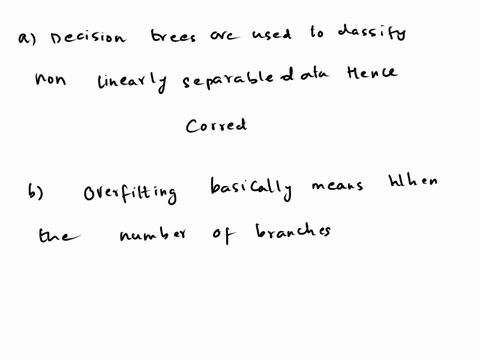 a) Decision trees are used to classify
non linearly separable data Hence
Correct
b) Overfitting basically means When
the number of branches